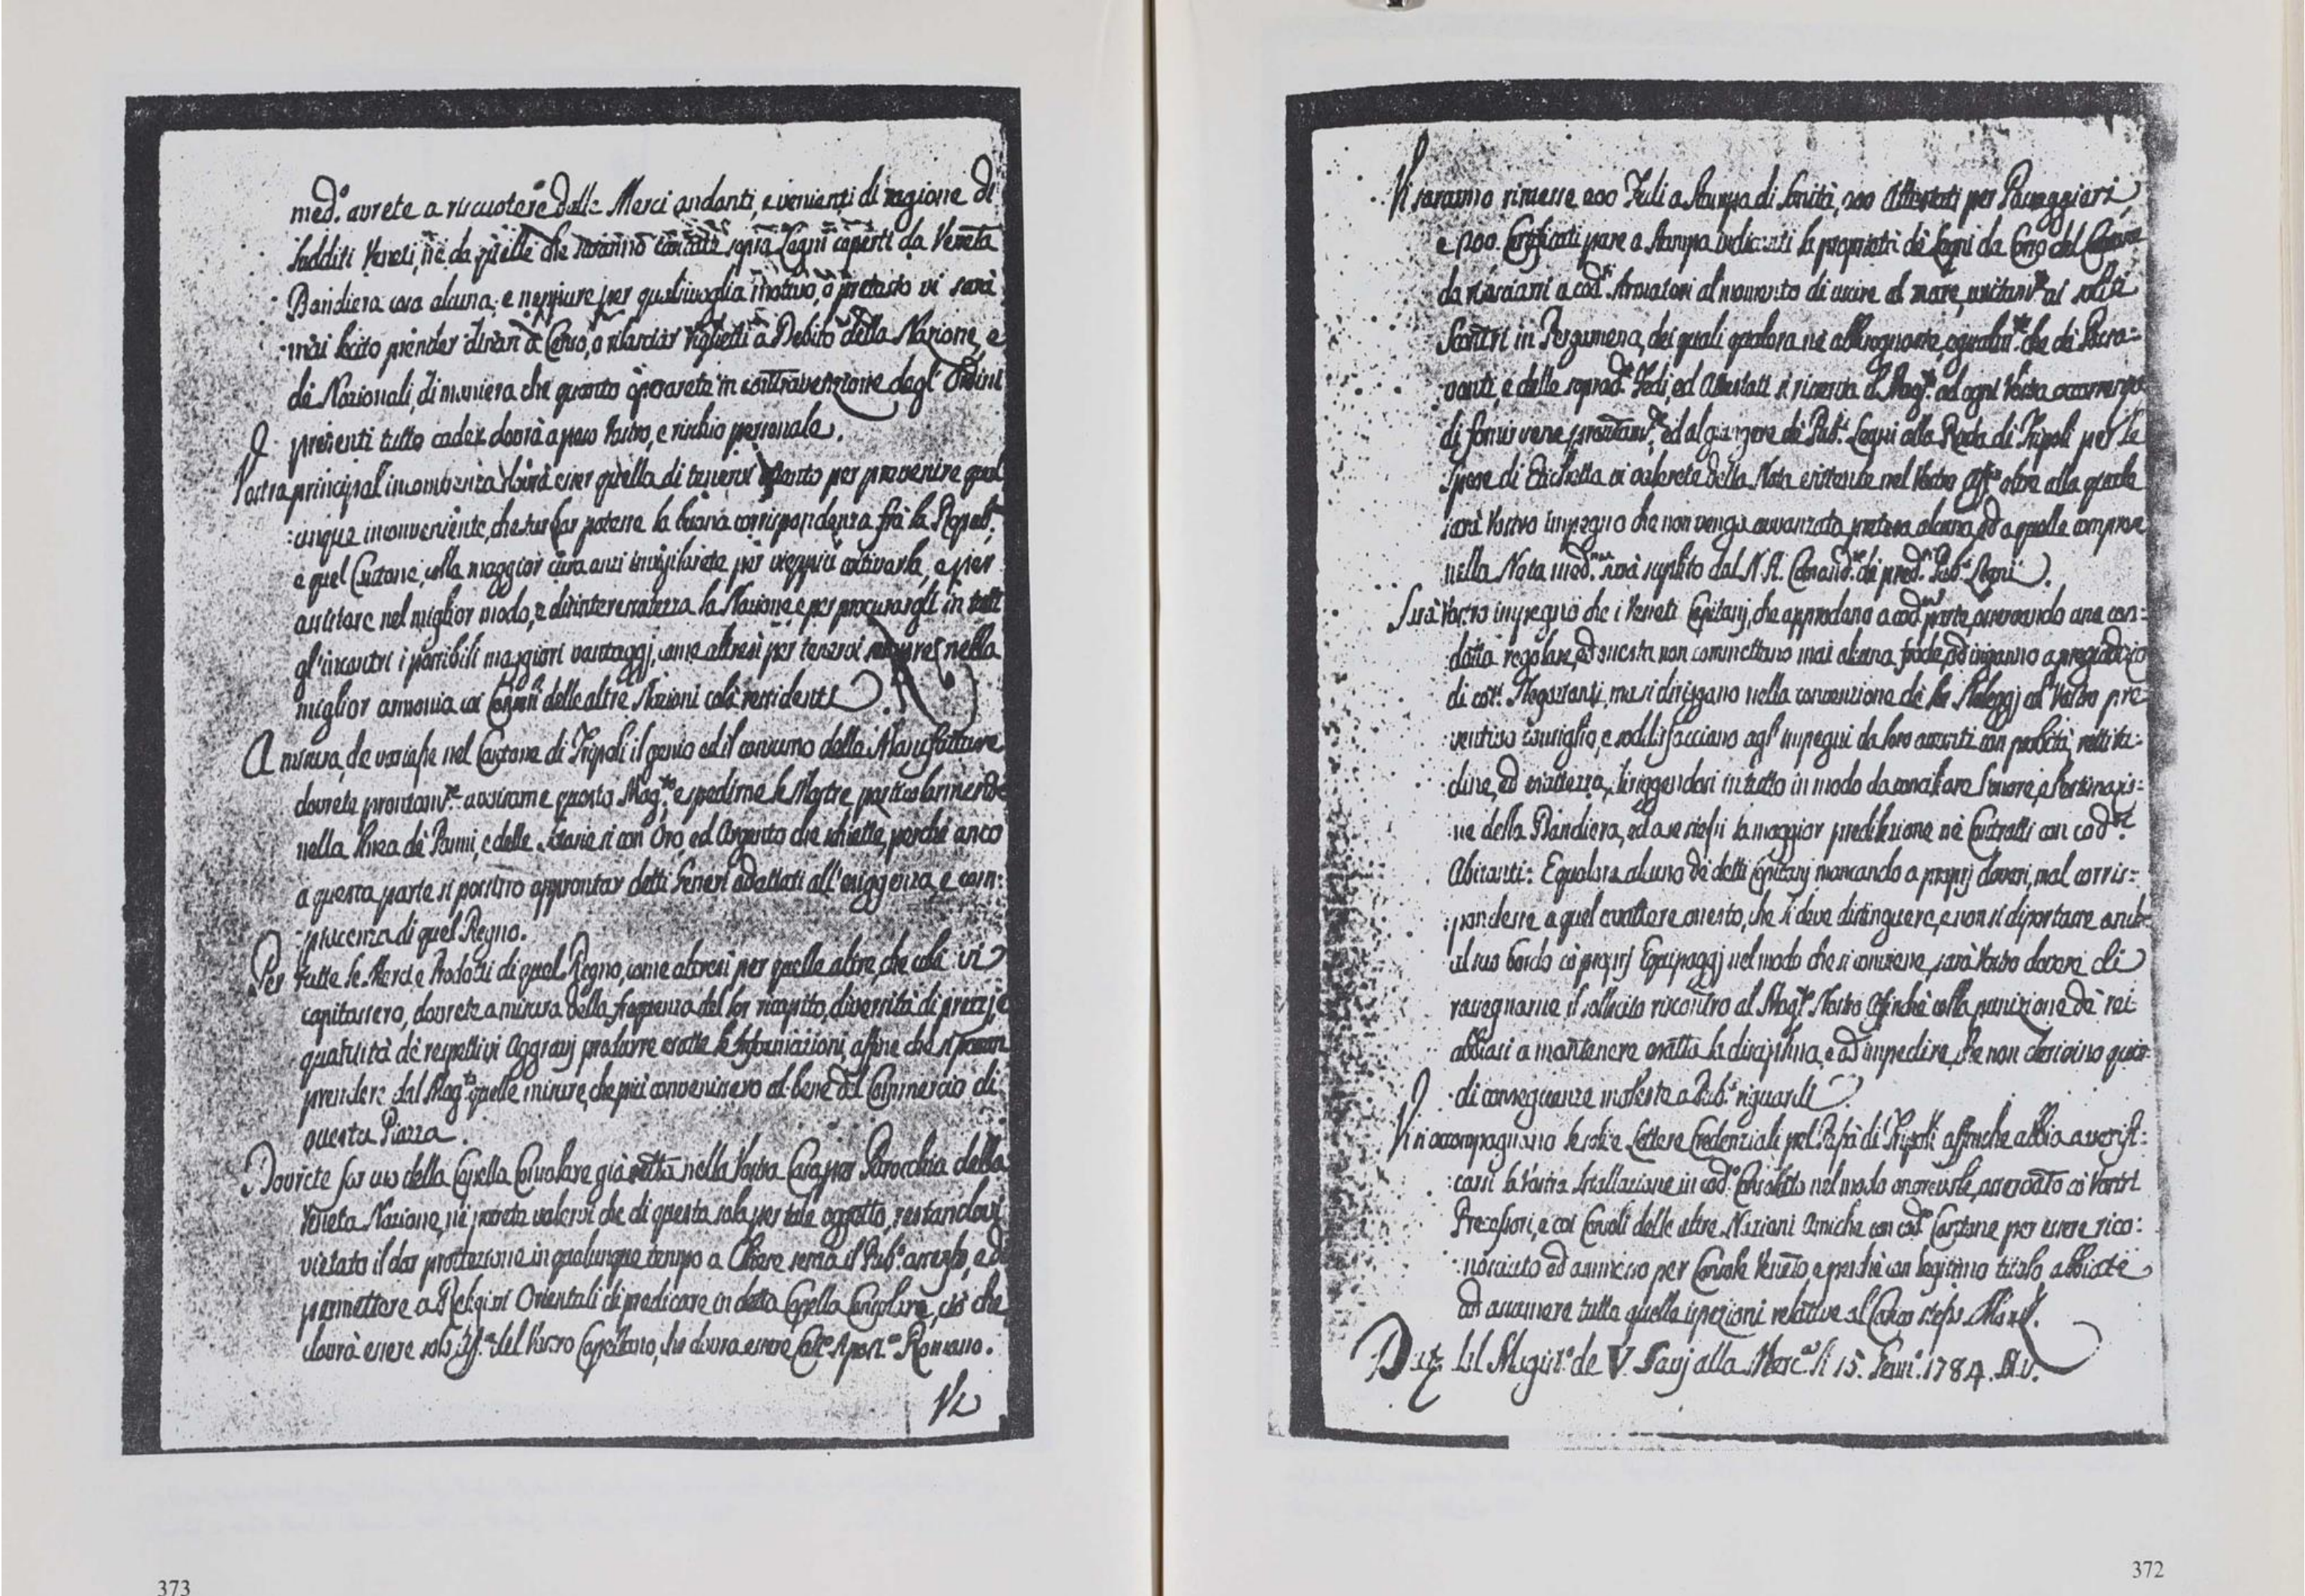 med.º avrete a riscuotere dalle Merci andanti, e venienti di ragione di
Sudditi Veneti, nè da quelle che saranno caricate sopra Legni coperti da Veneta
Bandiera cosa alcuna; e neppure per qualsivoglia motivo, o pretesto vi sarà
mai lecito prender dinari a Censo, o rilasciar Viglietti a Debito della Nazione, e
dè Nazionali, di maniera che quanto operarete in contravenzione degl' Ordini
presenti tutto cader dovrà a peso Vostro, e rischio personale.
Vostra principal' incombenza dovrà esser quella di tenervi per prevenire qual
:unque inconveniente, che turbar potesse la buona corrispondenza frà la Repub.ª
e quel Cantone; colla maggior cura anzi invigilarete per vieppiù coltivarla, e per
assistere nel miglior modo, e disinteressatezza la Nazione, e per procurargli in tutti
gl'incontri i possibili maggiori vantaggj, come altresì per tenervi sempre nella
miglior armonia coi Consoli delle altre Nazioni colà residenti.
A misura, che nel Cantone di Tripoli il genio ed il consumo delle Manufatture
dovrete prontam.te avvisarne questo Mag.to e spedirne le Mostre particolarmente
nella linea dè Panni, e delle sì con Oro, ed Argento che schiette, perchè anco
a questa parte si possino approntar detti Generi adattati all'esiggenza, e com:
:piacenza di quel Regno.
Per tutte le Merci e Prodotti di quel Regno, come altresì per quelle altre, che colà vi
capitassero, dovrete a misura della frequenza del lor ricapito, diversità di prezzj, e
quantità dè respettivi Aggravj produrre esatte le informazioni, affine che si possan
prendere dal Mag.to quelle misure, che più convenissero al bene del Commercio di
questa Piazza.
Dovrete far uso della Capella Consolare già eretta nella Vostra Casa per Parocchia della
Veneta Nazione, nè potrete valervi che di questa sola per tale oggetto, restandovi
vietato il dar prottezione in qualunque tempo a Chiese senza il Pub.º assenso, e di
permettere a Religiosi Orientali di predicare in detta Capella Consolare, ciò che
dovrà essere solo del Vostro Capellano, che dovrà essere Catt.º Apost.º Romano.
Vi
373
Vi saranno rimesse 200 Fedi a Stampa di Sanità, 200 Attestati per Passaggieri,
e 200. Certificati pure a Stampa indicanti la proprietà dè Legni da Corso del Cantone
da rilasciarsi a cod.ti Armatori al momento di uscire al mare, unitam.te ai soliti
Scontri in Pergamena, dei quali qualora ne abbisognaste, egualm.te che dè Passa:
:vanti, e delle soprad.te Fedi, ed Attestati si riserva il Mag.to ad ogni Vostra occorrenza
di fornirvene prontam.te ed al giungere dè Pub.ci Legni alla Rada di Tripoli per le
Spese di Etichetta vi valerete della Nota esistente nel Vostro Off.º oltre alla quale
sarà Vostro impegno che non venga avvanzata pretesa alcuna, ed a quelle comprese
nella Nota med.ma sarà supplito dal N. H. Comand.te dè pred.ti Pub.ci Legni.
Sarà Vostro impegno che i Veneti Capitanj, che approdano a cod.ta parte, osservando una con:
:dotta regolare, ed onesta non commettano mai alcuna frode, ed inganno a pregiudizio
di cot.i Negozianti, ma si diriggano nella convenzione dè lor Noleggj col Vostro pre
:ventivo consiglio, e soddisfacciano agl'impegni da loro assunti con probità, rettitu:
:dine, ed esattezza, diriggendosi in tutto in modo da conciliare l'onore, e l'estimazio:
:ne della Bandiera, ed a se stessi la maggior predilezione nè Contratti con cod.ti
Abitanti: E qualora alcuno dè detti Capitanj mancando a proprj doveri, mal corris:
:pondesse a quel carattere onesto, che li deve distinguere, e non si diportasse anche
al suo bordo cò proprj Equipaggj nel modo che si conviene, sarà Vostro dovere di
rassegnarne il sollecito riscontro al Mag.to Nostro affinchè colla punizione dè rei
abbiasi a mantenere esatta la disciplina, e ad impedire, che non derivino quin
:di conseguenze moleste a Pub.ci riguardi.
Vi si accompagnano le solite Lettere Credenziali pel Pascià di Tripoli affinchè abbia a verifi:
:carsi la Vostra Installazione in cod.º Consolato nel modo onorevole, osservato cò Vostri
Precessori, e coi Consoli delle altre Nazioni Amiche con cod.º Cantone per essere rico:
:nosciuto ed ammesso per Console Veneto, e perchè con legitimo titolo abbiate
ad assumere tutte quelle ispezioni relative al Carico stesso.
Dat. dal Magist.º de V. Savj alla Merc.ª li 15. Genn.º 1784. M.V.
372